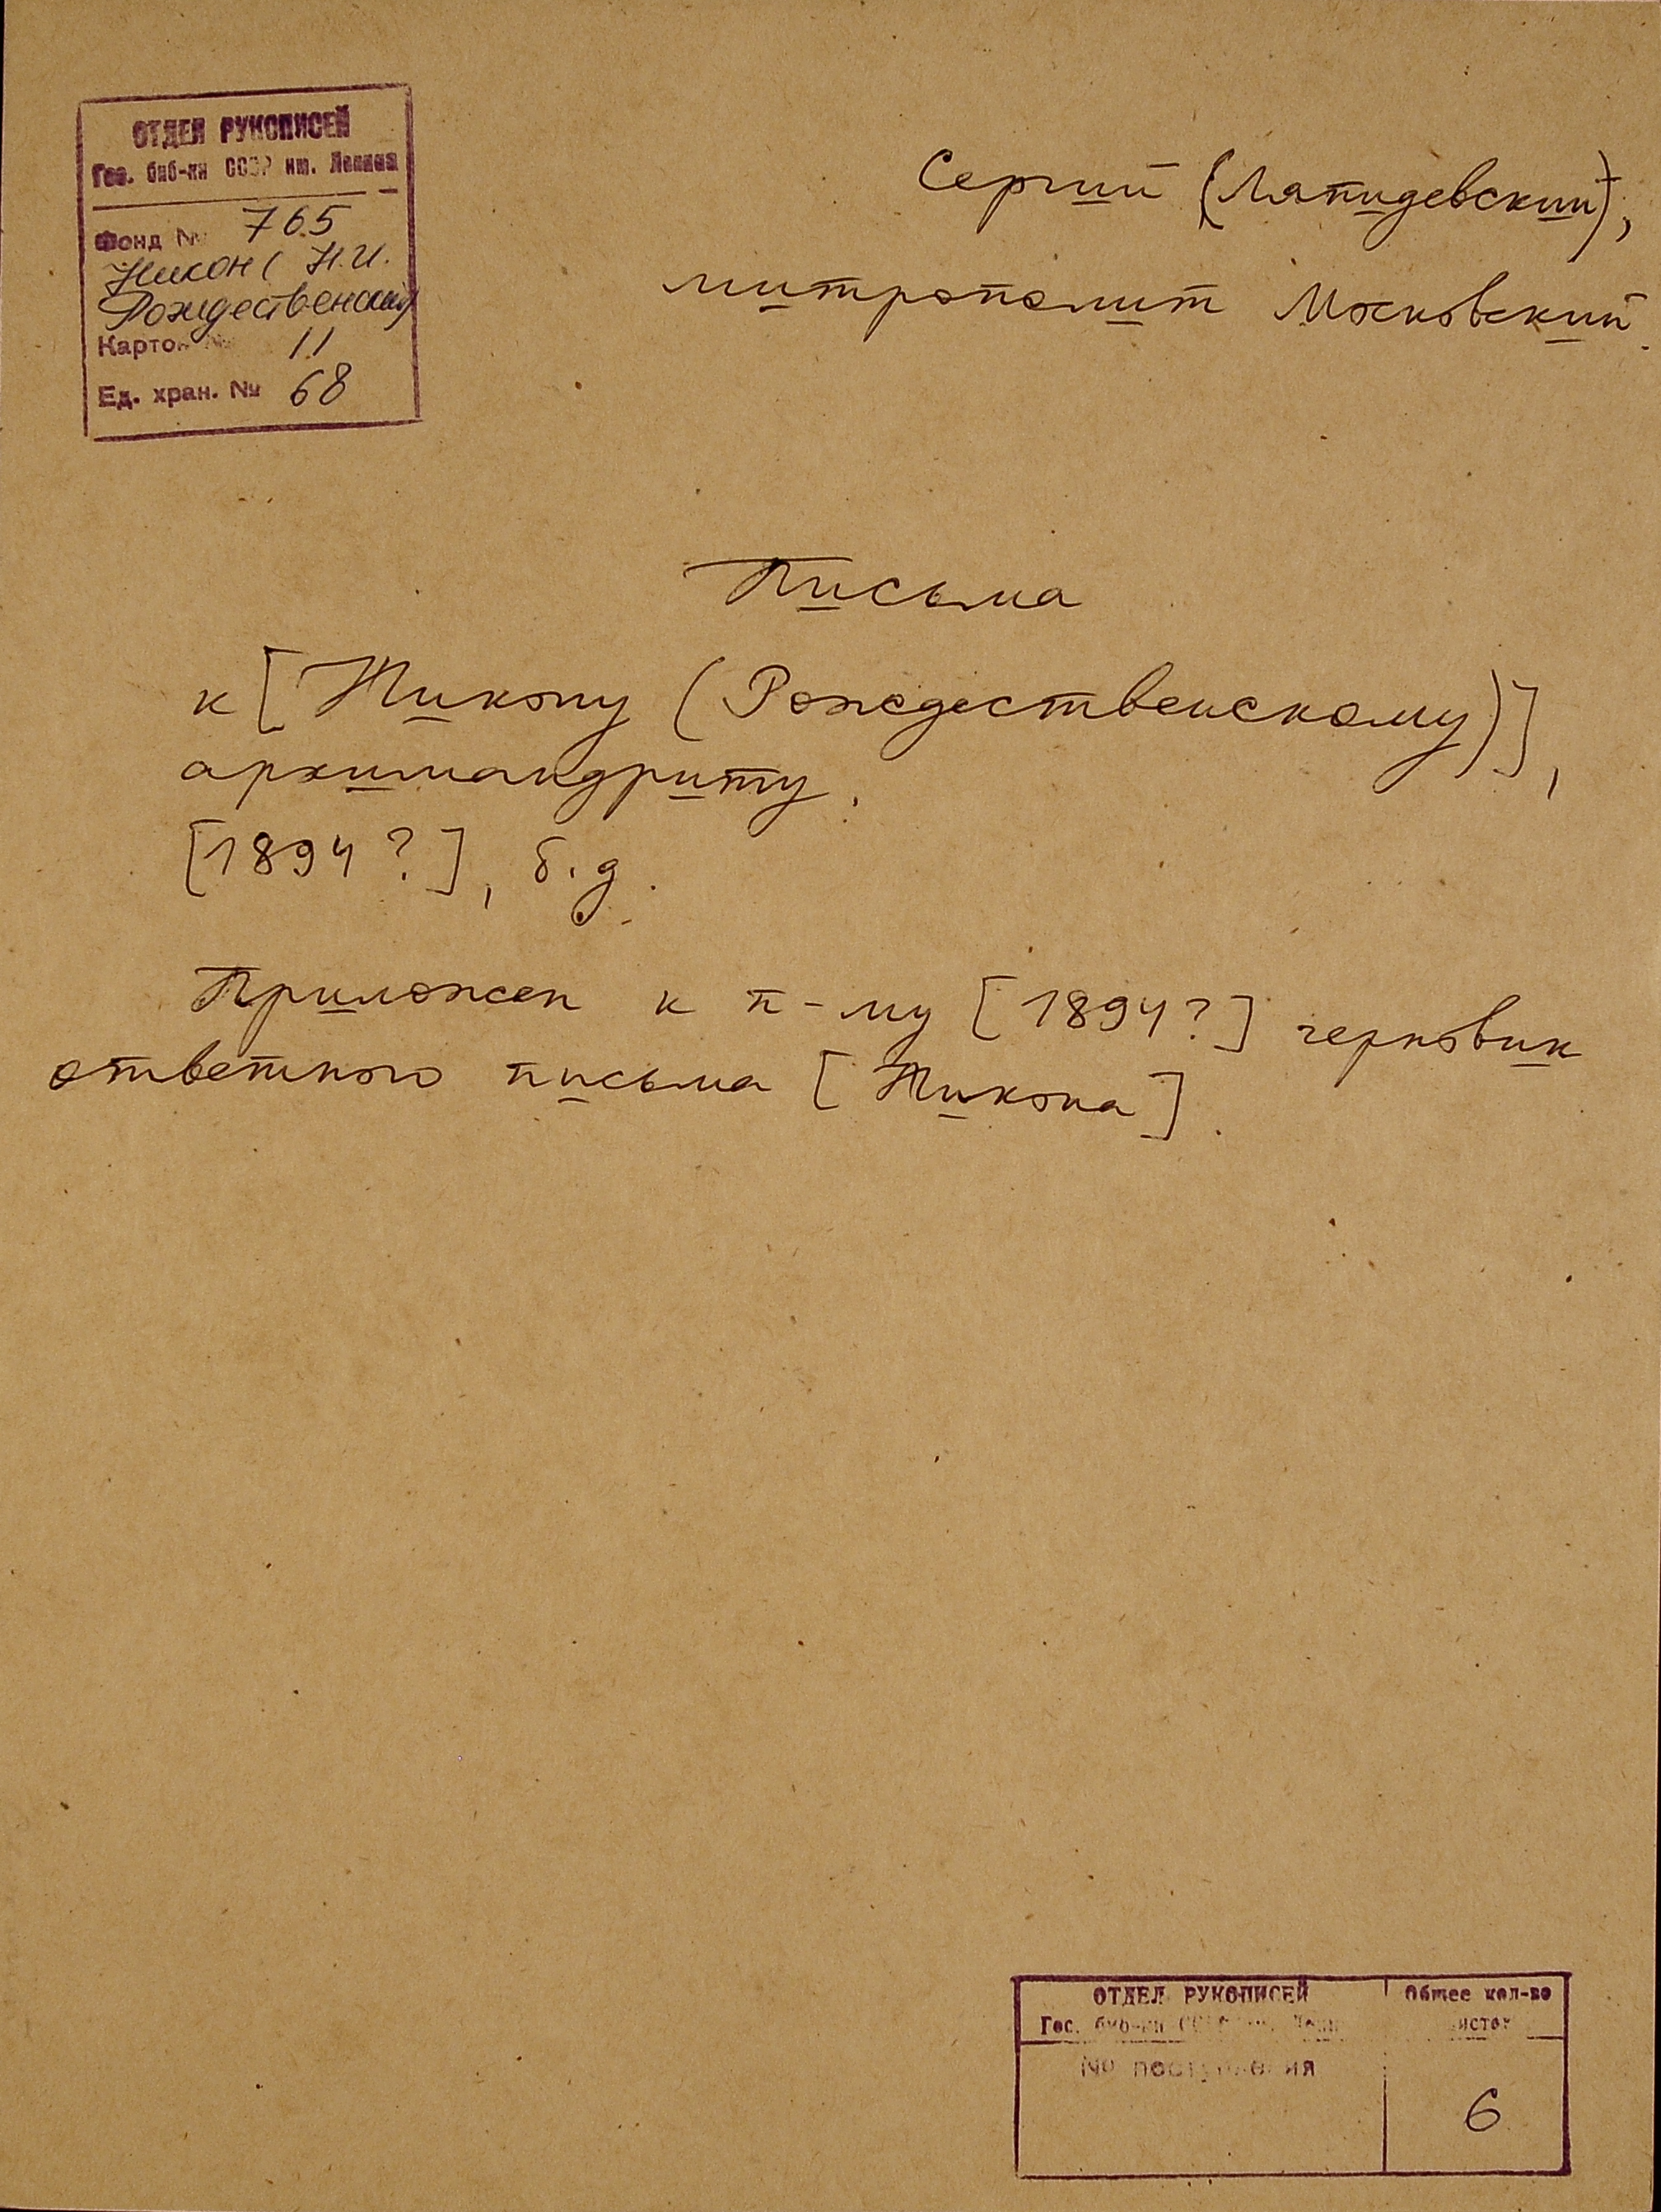 ОТДЕЛ РУКОПИСЕЙ
Гос. биб-ки СССР им. Ленина
Фонд № 765
Никон ( Н.И.
Рождественский
Картон № 11
Ед. хран. № 68
Сергий (Ляпидевский),
митрополит Московский.
Письма
к [Никону (Рождественскому)],
архимандриту.
[1894?], б.д.
Приложен к п-му [1894?] черновик
ответного письма [Никона].
ОТДЕЛ РУКОПИСЕЙ
Гос. биб-ки СССР им. Ленина
№ поступления
Общее кол-во
листов
6